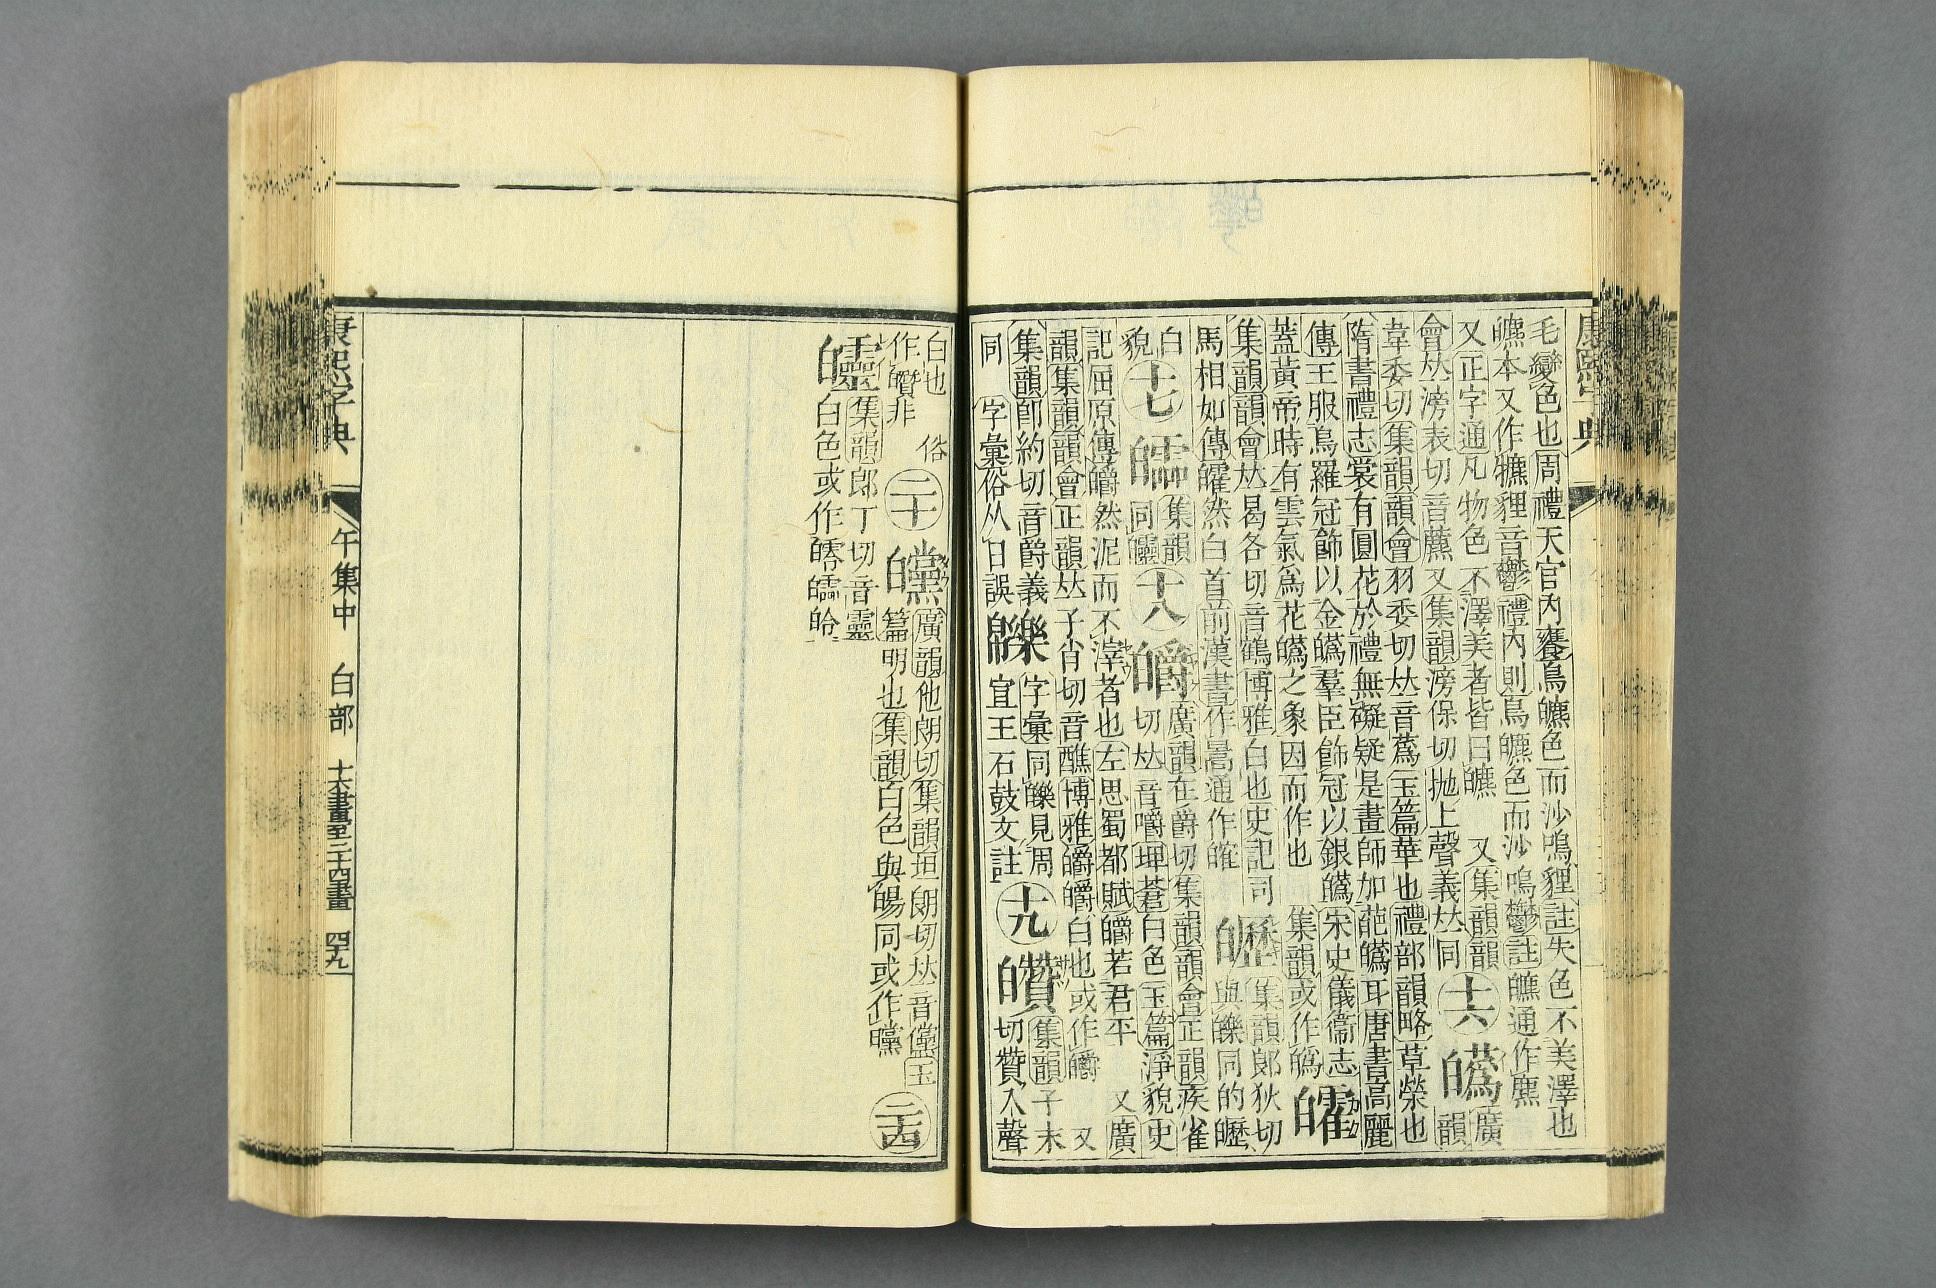 康熙字典
毛變色也周禮天官內饔鳥皫色而沙鳴貍註失色不美澤也
皫本又作犥貍音鬱禮內則鳥皫色而沙鳴鬱註皫通作麃
又正字通凡物色不澤美者皆曰皫 又集韻韻
會𠀤滂表切音藨又集韻滂保切拋上聲義𠀤同
十六
廣韻
韋委切集韻韻會羽委切𠀤音蔿玉篇華也禮部韻略草榮也
隋書禮志裳有圓花於禮無礙疑是畫師加葩耳唐書高麗
傳王服鳥羅冠飾以金羣臣飾冠以銀宋史儀衞志
蓋黃帝時有雲氣爲花之象因而作也 集韻或作
皬
集韻韻會𠀤曷各切音鶴博雅白也史記司
馬相如傳皬然白首前漢書作暠通作㿥
集韻郞狄切
與皪同的
白
貌
十七
集韻
同
十八
皭
廣韻在爵切集韻韻會正韻疾雀
切𠀤音嚼埤蒼白色玉篇淨貌史
記屈原傳皭然泥而不滓者也左思蜀都賦皭若君平 又廣
韻集韻韻會正韻𠀤子肖切音醮博雅皭皭白也或作 又
集韻卽約切音爵義
同 字彙俗从日誤
字彙同皪見周
宣王石鼓文註
十九
集韻子末
切贊入聲
白也 俗
作非
二十
廣韻他朗切集韻坦朗切𠀤音儻玉
篇明也集韻白色與㿩同或作曭
二十四
集韻郎丁切音靈
白色或作
康熙字典
午集中 白部 十六畫至二十四畫 四十九